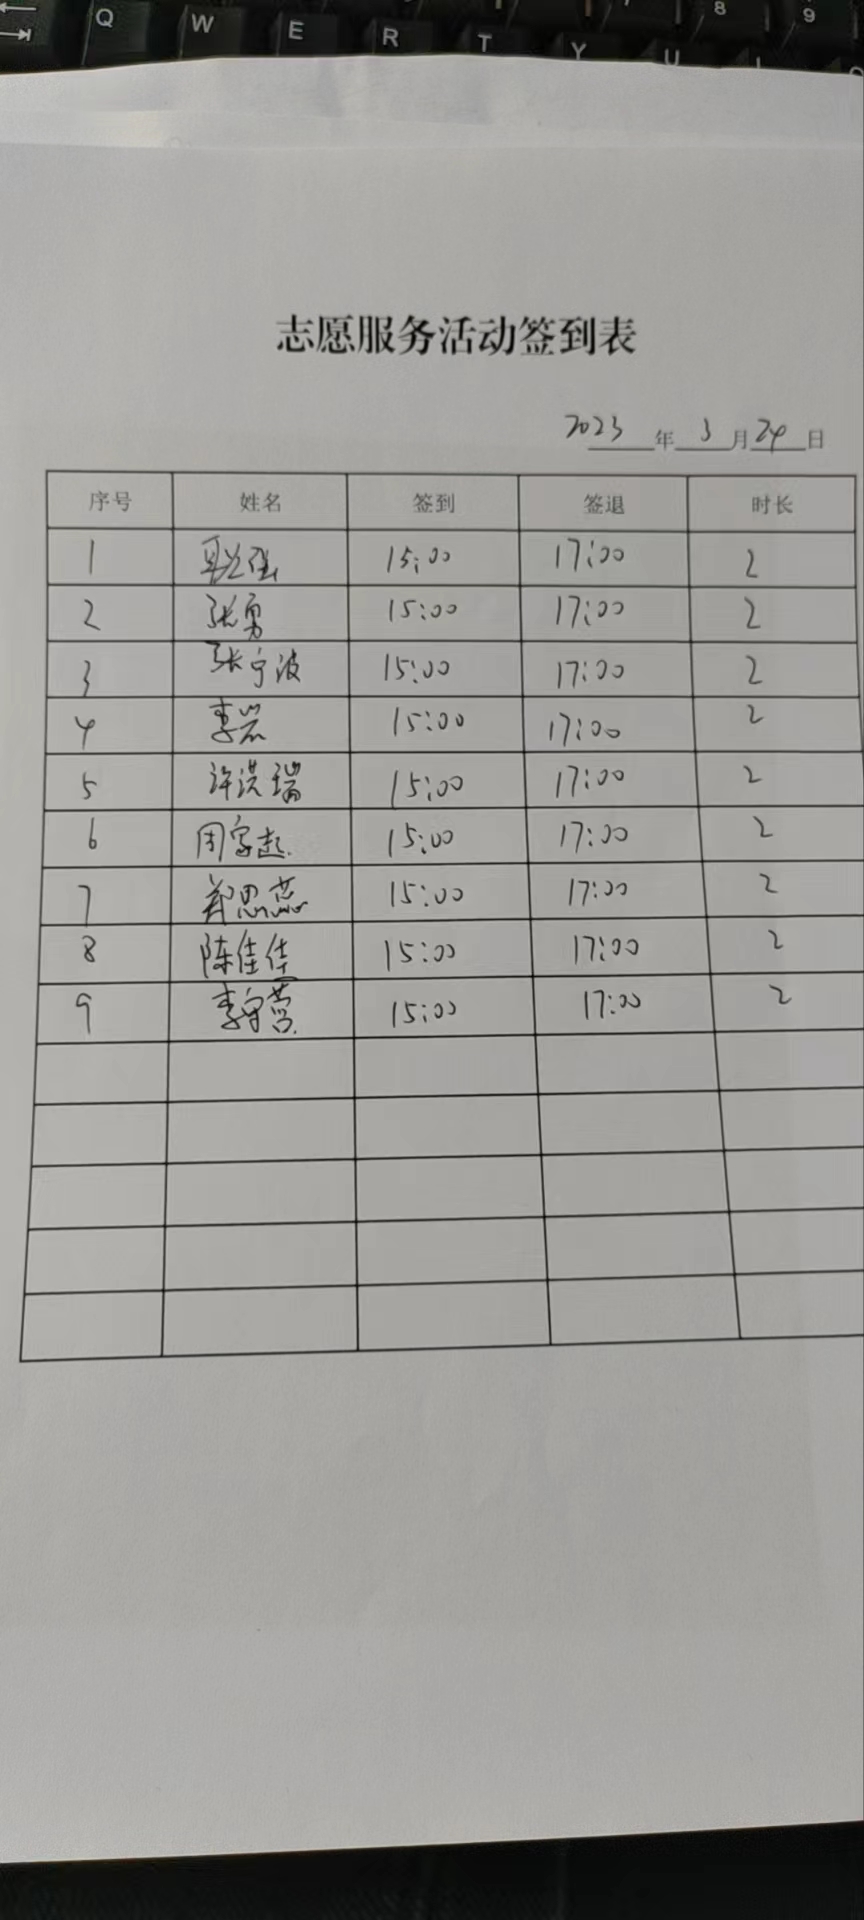 Q W E R T Y U 8 9
志愿服务活动签到表
2023年3月24日
序号 姓名 签到 签退 时长
1 15:00 17:00 2
2 张勇 15:00 17:00 2
3 张宁波 15:00 17:00 2
4 李岩 15:00 17:00 2
5 许洪瑞 15:00 17:00 2
6 周家起 15:00 17:00 2
7 郑思蕊 15:00 17:00 2
8 陈佳佳 15:00 17:00 2
9 李守营 15:00 17:00 2